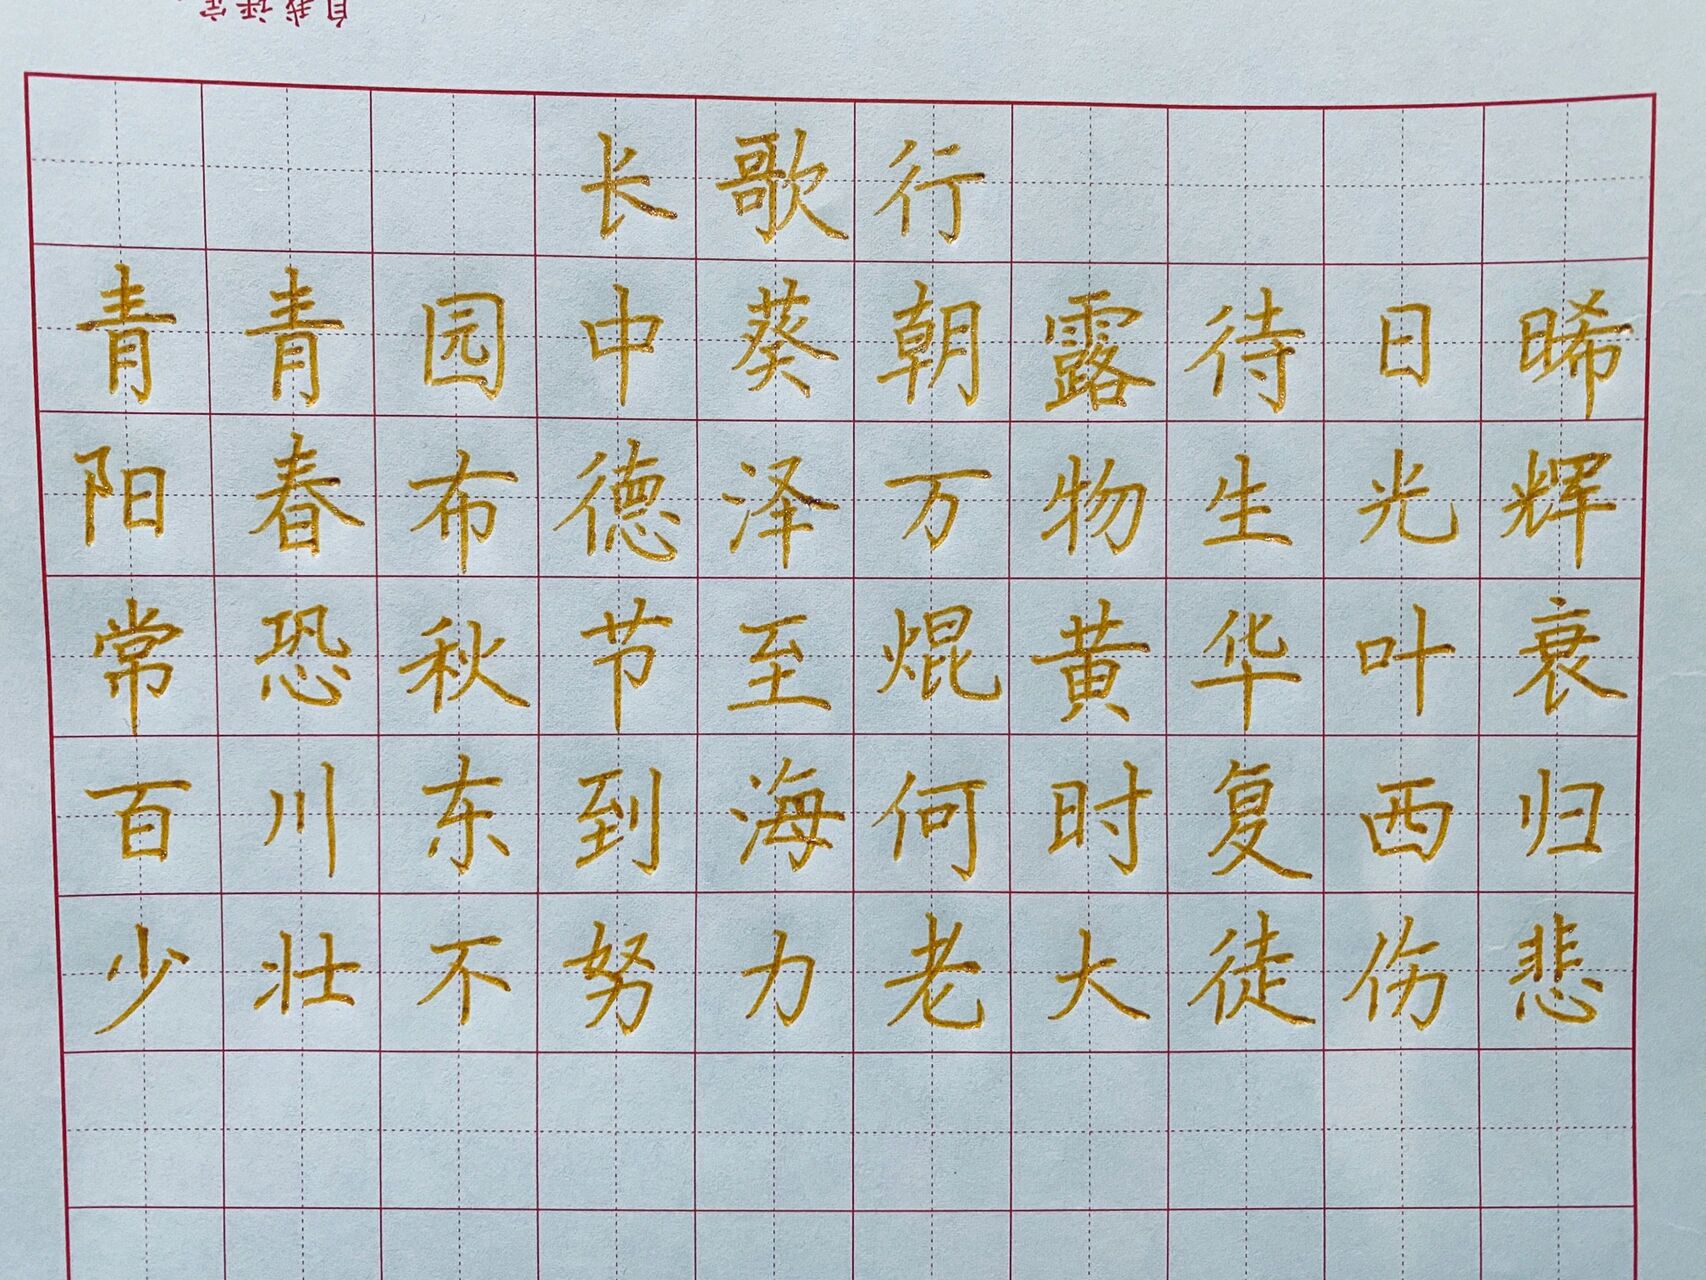 自我评定
长歌行
青青园中葵朝露待日晞
阳春布德泽万物生光辉
常恐秋节至焜黄华叶衰
百川东到海何时复西归
少壮不努力老大徒伤悲